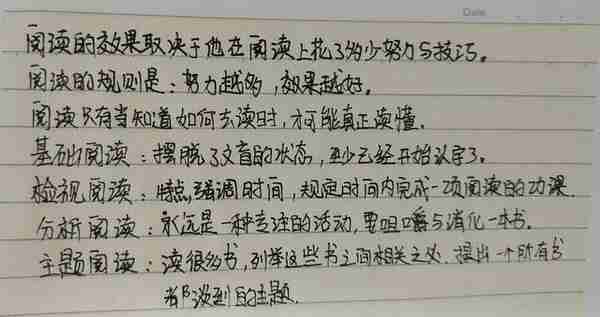 Date
阅读的效果取决于他在阅读上花了多少努力与技巧。
阅读的规则是：努力越多，效果越好。
阅读只有当知道如何去读时，才可能真正读懂。
基础阅读：摆脱了文盲的状态，至少已经开始认字了。
检视阅读：特点，强调时间，规定时间内完成一项阅读的功课.
分析阅读：永远是一种专注的活动，要咀嚼与消化一本书。
主题阅读：读很多书，列举这些书之间相关之处．提出一个所有书
都谈到的主题．